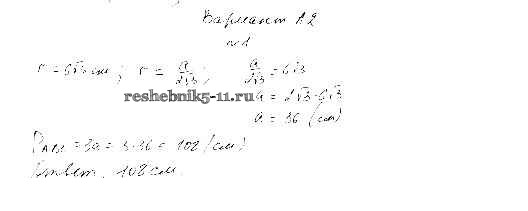 Вариант А2
№1
r = 6√3 см; r = a/2√3; a/2√3 = 6√3
reshebnik5-11.ru
a = 2√3·6√3
a = 36 (см)
P_ABC = 3a = 3·36 = 108 (см)
Ответ. 108 см.